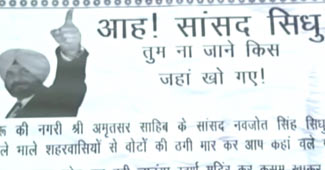 आह! सांसद सिधु
तुम ना जाने किस
जहां खो गए!
की नगरी श्री अमृतसर साहिब के सांसद नवजोत सिंह सिधु
ले भाले शहरवासियों से वोटों की ठगी मार कर आप कहां चले